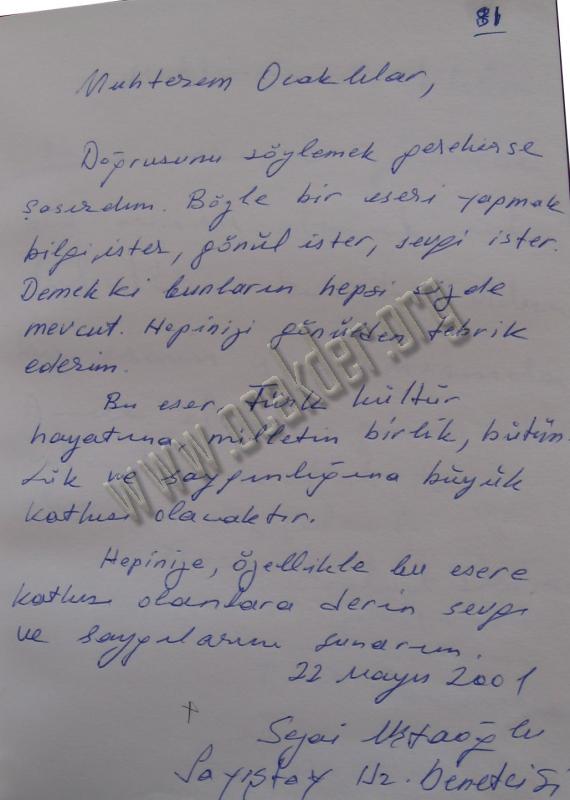 81
Muhterem Ocaklılar,
Doğrusunu söylemek gerekirse
şaşırdım. Böyle bir eseri yapmak
bilgi ister, gönül ister, sevgi ister.
Demekki bunların hepsi sizde
mevcut. Hepinizi gönülden tebrik
ederim.
Bu eser, Türk kültür
hayatına, milletin birlik, bütün-
lük ve saygınlığına büyük
katkısı olacaktır.
Hepinize, özellikle bu esere
katkısı olanlara derin sevgi
ve saygılarımı sunarım.
22 Mayıs 2001
Sayıştay Uz. Denetçisi
www.ocakder.org